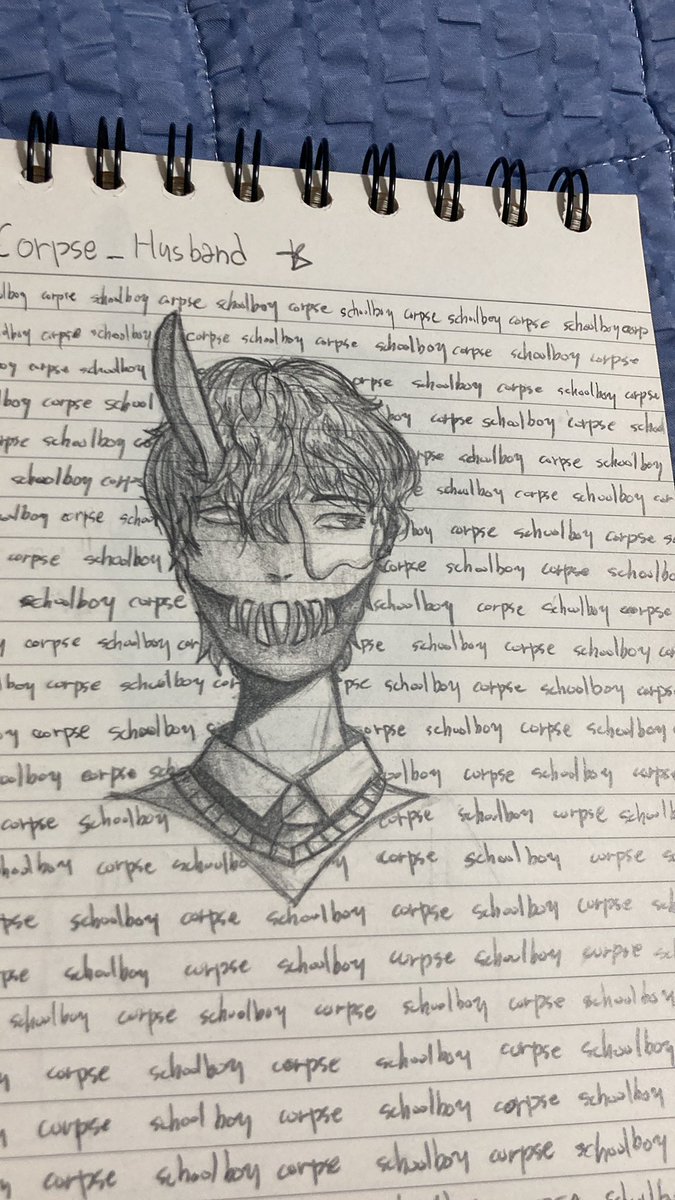 Corpse_Husband
corpse schoolboy corpse schoolboy corpse schoolboy corpse schoolboy corpse schoolboy corp
corpse schoolboy corpse schoolboy corpse schoolboy corpse schoolboy corpse
corpse schoolboy corpse schoolboy corpse schoolboy corpse
boy corpse school boy corpse schoolboy corpse
corpse schoolboy schoolboy corpse schoolboy
schoolboy schoolboy corpse schoolboy
corpse boy corpse schoolboy corpse
corpse schoolboy corpse schoolboy corpse
schoolboy corpse schoolboy corpse schoolboy corpse
corpse schoolboy schoolboy corpse schoolboy
boy corpse schoolboy schoolboy corpse schoolboy corpse
corpse schoolboy corpse schoolboy corpse schoolboy
corpse corpse schoolboy corpse
corpse schoolboy corpse schoolboy corpse
corpse corpse schoolboy corpse
schoolboy corpse schoolboy corpse schoolboy corpse
schoolboy corpse schoolboy corpse schoolboy corpse
schoolboy corpse schoolboy corpse schoolboy corpse schoolboy
corpse schoolboy corpse schoolboy corpse schoolboy
corpse school boy corpse schoolboy corpse schoolboy
corpse schoolboy corpse schoolboy corpse schoolboy